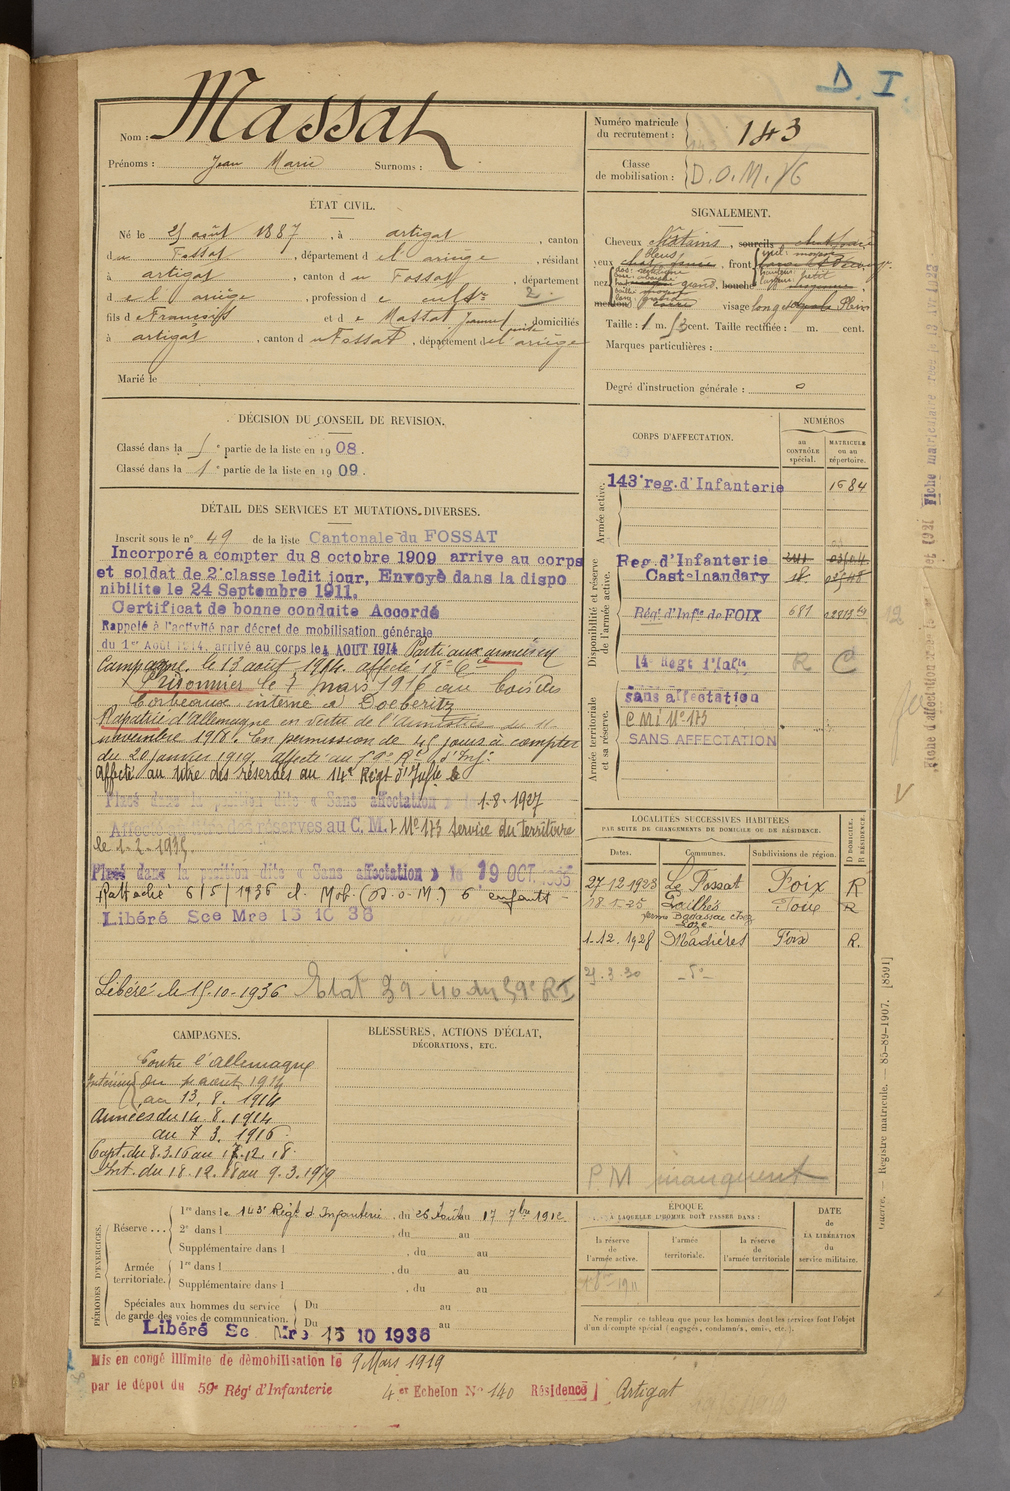 D. I.
Nom : Massat
Prénoms : Jean Marie Surnoms :
Numéro matricule du recrutement : 143
Classe de mobilisation : D.O.M. 16
ÉTAT CIVIL.
Né le 25 août 1887, à artigat, canton
du Fossat, département de l'ariège, résidant
à artigat, canton du Fossat, département
de l'ariège, profession de cultr 2.
fils de François et de Massat Jeanne domiciliés
à artigat, canton du Fossat, département de l'ariège
Marié le
SIGNALEMENT.
Cheveux châtains, sourcils
yeux bleus, front
nez grand, bouche
menton visage long Plein
Taille : 1 m. 53 cent. Taille rectifiée : m. cent.
Marques particulières :
Degré d'instruction générale : 0
DÉCISION DU CONSEIL DE REVISION.
Classé dans la 5e partie de la liste en 1908.
Classé dans la 1e partie de la liste en 1909.
DÉTAIL DES SERVICES ET MUTATIONS DIVERSES.
Inscrit sous le n° 49 de la liste Cantonale du FOSSAT
Incorporé a compter du 8 octobre 1909 arrive au corps
et soldat de 2e classe ledit jour, Envoyé dans la dispo
nibilite le 24 Septembre 1911.
Certificat de bonne conduite Accordé
Rappelé à l'activité par décret de mobilisation générale
du 1er Août 1914, arrivé au corps le 4 AOUT 1914 Parti aux armées en
Campagne le 13 août 1914. affecté 18e Cie
Prisonnier le 7 mars 1916 au bois des
Corbeaux interné à Doeberitz
Rapatrié d'allemagne en vertu de l'armistice du 11
novembre 1918. En permission de 45 jours à compter
du 20 janvier 1919. affecté au 59e Rt d'Inf.
affecté au titre des réserves au 14e Regt d'Infie le
Placé dans la position dite « Sans affectation » le 1-8-1927
Affecté réserves au C.M.I No 173 Service du territoire
le 1-2-1935.
Placé dans la position dite « Sans affectation » le 19 OCT. 1935
Rattaché 6/5/1936 cl. Mob. (D.O.M.) 6 enfants
Libéré Sce Mre 15 10 36
Libéré le 15-10-1936 Etat 39-40 du 59e RI
CORPS D'AFFECTATION.
NUMÉROS
au CONTRÔLE spécial.
MATRICULE ou au répertoire.
Armée active.
143e reg. d'Infanterie 1684
Disponibilité et réserve de l'armée active.
Reg. d'Infanterie
Castelnaudary
Régt d'Infie de FOIX 681
14e Regt d'Infie R C
Armée territoriale et sa réserve.
sans affectation
C M I No 173
SANS AFFECTATION
LOCALITÉS SUCCESSIVES HABITÉES
PAR SUITE DE CHANGEMENTS DE DOMICILE OU DE RÉSIDENCE.
Dates. Communes. Subdivisions de région. D DOMICILE. R RÉSIDENCE.
27-12-1923 Le Fossat Foix R
18-1-25 Pailhès Foix R
1-12-1928 Madières Foix R.
25-3-30 -do-
P.M manquent
CAMPAGNES.
Contre l'allemagne
Intérieur du 4 août 1914
au 13. 8. 1914
Armées du 14. 8. 1914
au 7 3. 1916
Capt. du 8.3.16 au 17.12.18.
Int. du 18.12.18 au 9.3.1919
BLESSURES, ACTIONS D'ÉCLAT,
DÉCORATIONS, ETC.
PÉRIODES D'EXERCICES.
Réserve ... 1re dans le 143e Regt d'Infanterie, du 26 Août au 17 7bre 1912
2e dans l , du au
Supplémentaire dans l , du au
Armée territoriale. 1re dans l , du au
Supplémentaire dans l , du au
Spéciales aux hommes du service
de garde des voies de communication. Du au
Du au
Libéré Sce Mre 15 10 1936
ÉPOQUE
À LAQUELLE L'HOMME DOIT PASSER DANS :
la réserve de l'armée active.
l'armée territoriale.
la réserve de l'armée territoriale
DATE de LA LIBÉRATION du service militaire.
1 8bre 1911
Ne remplir ce tableau que pour les hommes dont les services font l'objet
d'un décompte spécial (engagés, condamnés, omis, etc.).
Mis en congé illimité de démobilisation le 9 Mars 1919
par le dépôt du 59e Régt d'Infanterie 4er Echelon No 140 Résidence Artigat
Guerre. — Registre matricule. — 85-89-1907. [8591]